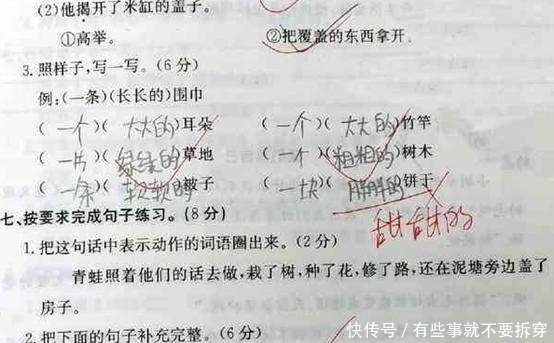 (2)他揭开了米缸的盖子。
①高举。 ②把覆盖的东西拿开。
3.照样子,写一写。(6分)
例:(一条)(长长的)围巾
(一个)(大大的)耳朵 (一个)(大大的)竹竿
(一片)(绿绿的)草地 (一个)(粗粗的)树木
(一条)(软软的)被子 (一块)(胖胖的)饼干
甜甜的
七、按要求完成句子练习。(8分)
1.把这句话中表示动作的词语圈出来。(2分)
青蛙照着他们的话去做,栽了树,种了花,修了路,还在泥塘旁边盖了
房子。
2.把下面的句子补充完整。(6分)
快传号/有些事就不要拆穿